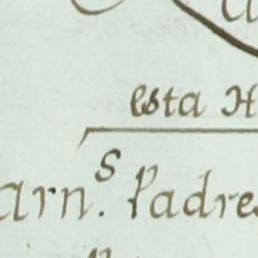 esta H
arn.s Padres